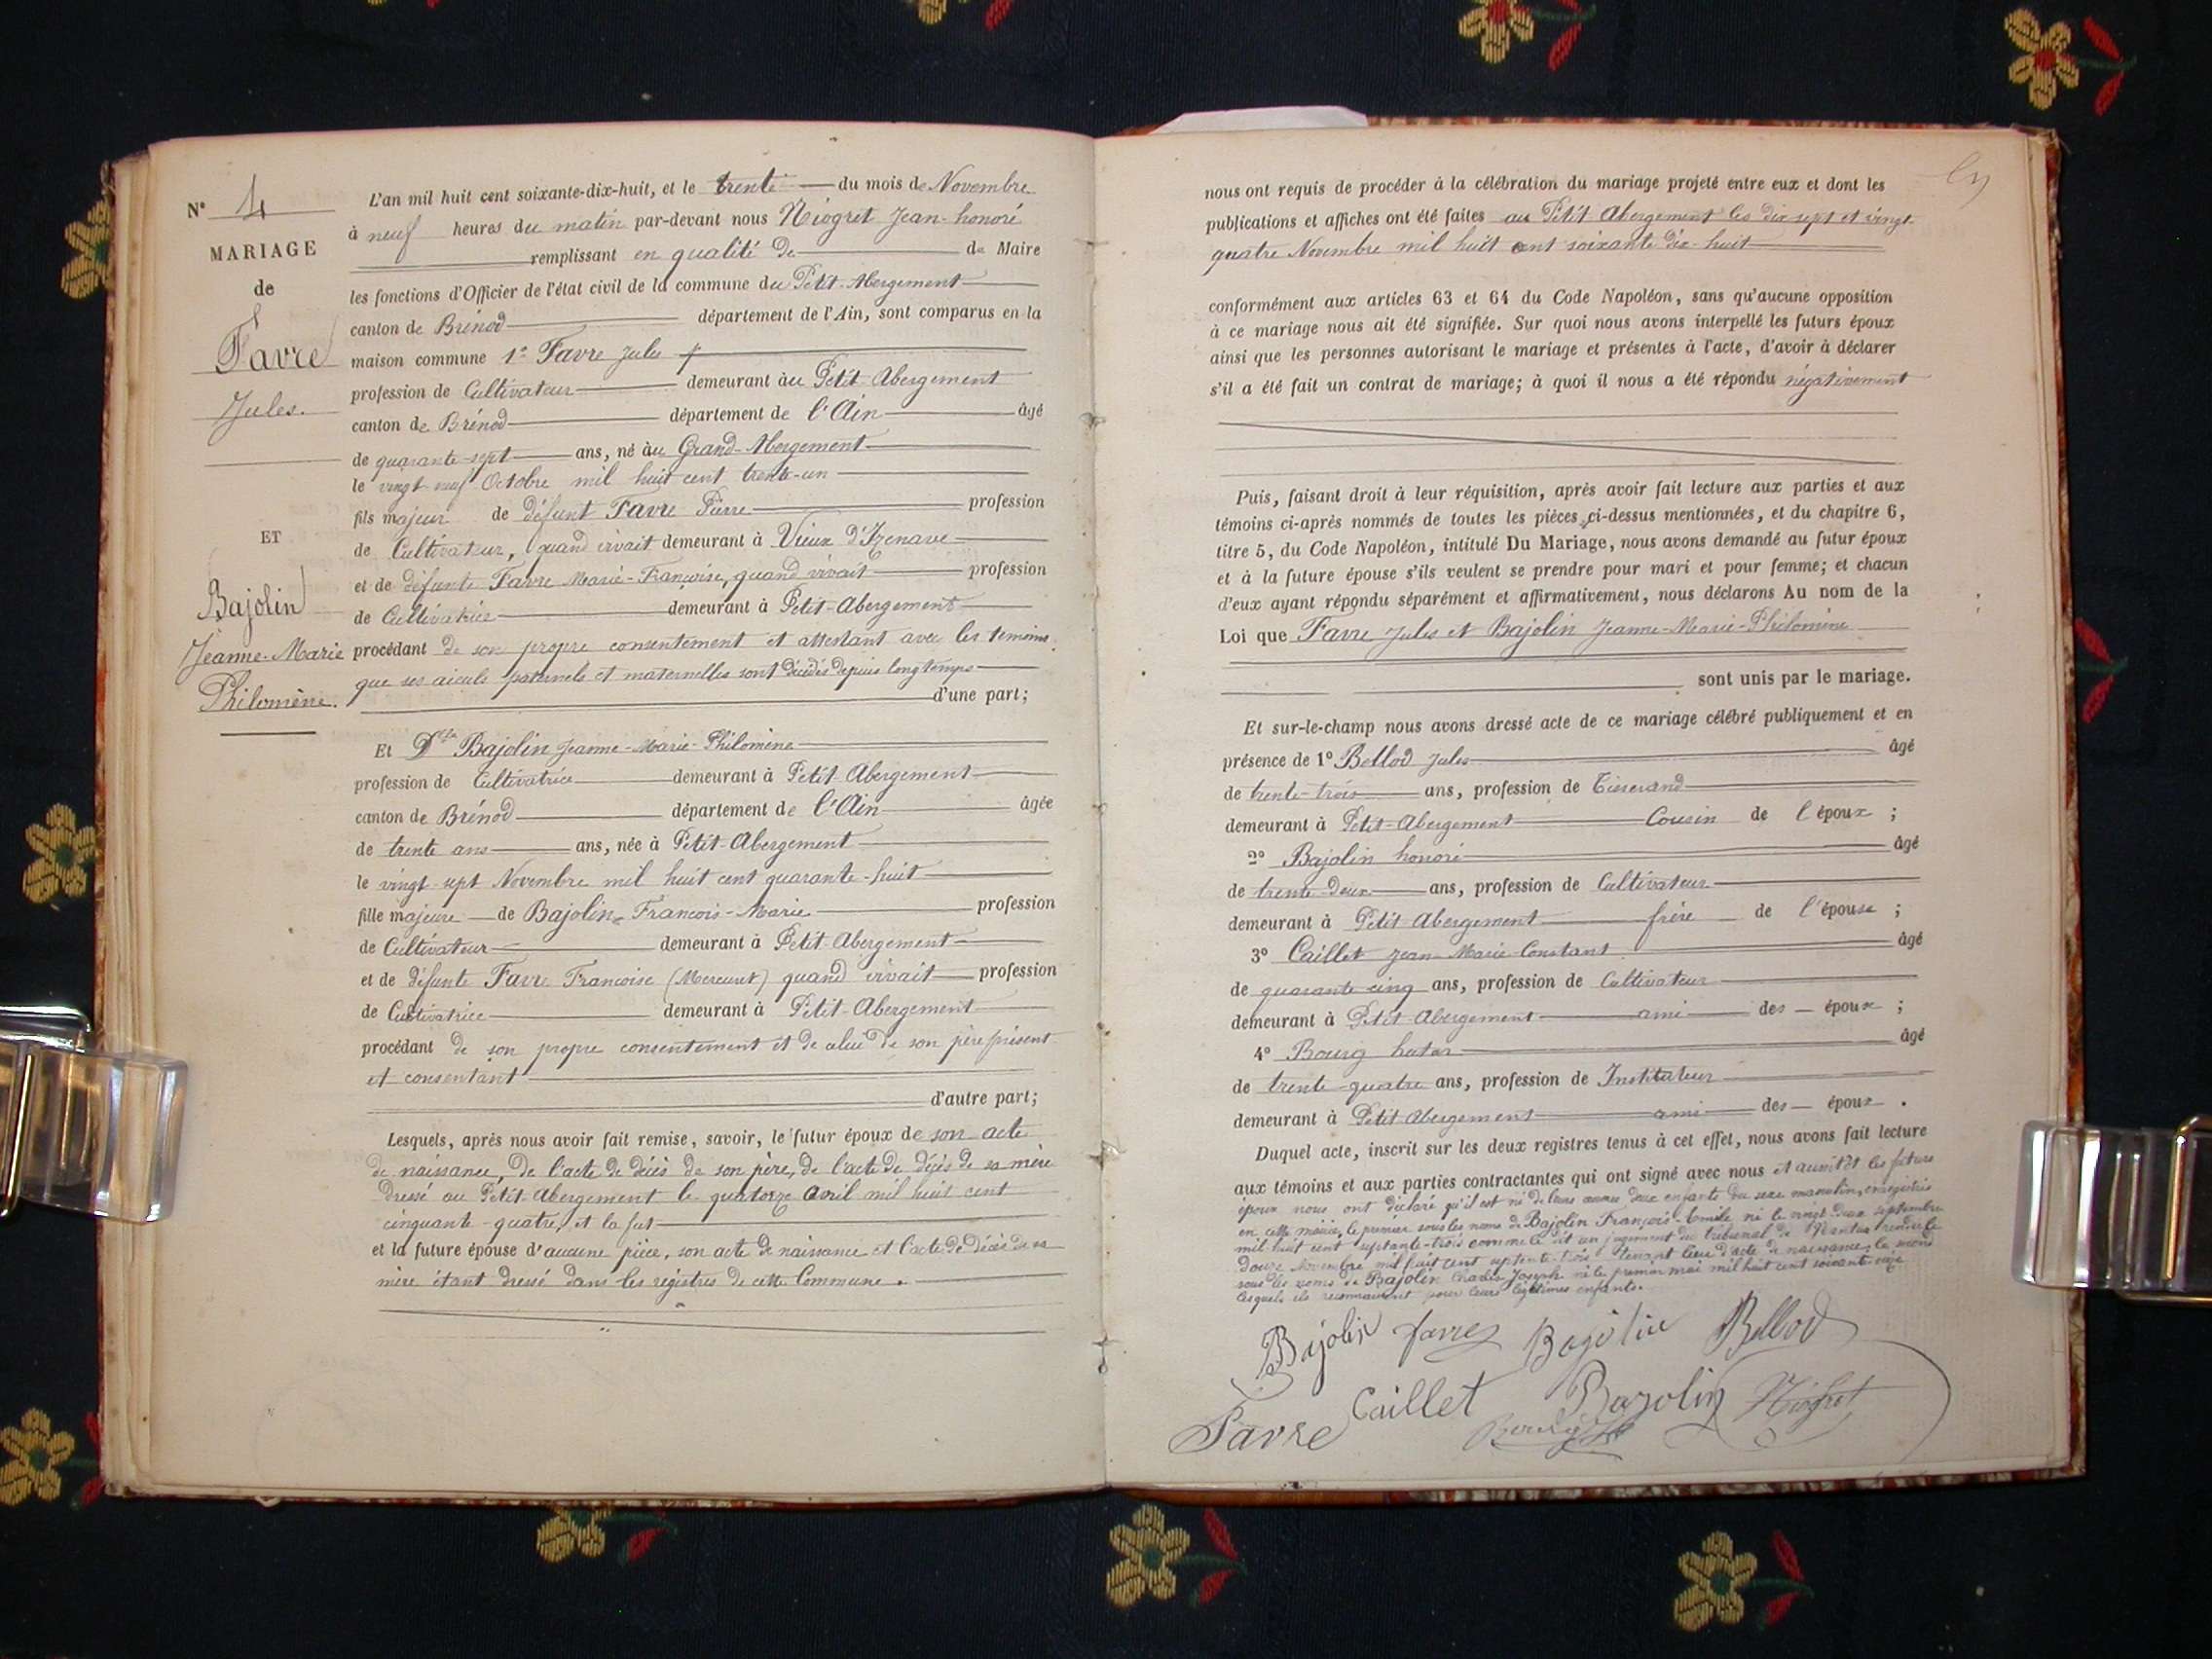 N° 4
MARIAGE
de
Favre
Jules.
ET
Bajolin
Jeanne-Marie
Philomène.
L'an mil huit cent soixante-dix-huit, et le trente du mois de Novembre
à neuf heures du matin par-devant nous Niogret Jean-honoré
remplissant en qualité de de Maire
les fonctions d'Officier de l'état civil de la commune du Petit-Abergement
canton de Brénod département de l'Ain, sont comparus en la
maison commune 1° Favre Jules
profession de Cultivateur demeurant àu Petit-Abergement
canton de Brénod département de l'Ain âgé
de quarante-sept ans, né àu Grand-Abergement
le vingt-neuf Octobre mil huit cent trente-un
fils majeur de défunt Favre Pierre profession
de Cultivateur, quand vivait demeurant à Vieux d'Izenave
et de défunte Favre Marie-Françoise, quand vivait profession
de Cultivatrice demeurant à Petit-Abergement
procédant de son propre consentement et attestant avec les temoins
que ses aïeuls paternels et maternelles sont décédés depuis longtemps
d'une part;
Et Delle Bajolin Jeanne-Marie-Philomène
profession de Cultivatrice demeurant à Petit-Abergement
canton de Brénod département de l'Ain âgée
de trente ans ans, née à Petit-Abergement
le vingt-sept Novembre mil huit cent quarante-huit
fille majeure de Bajolin François-Marie profession
de Cultivateur demeurant à Petit-Abergement
et de défunte Favre Françoise (Mercuret) quand vivait profession
de Cultivatrice demeurant à Petit-Abergement
procédant de son propre consentement et de celui de son père présent
et consentant
d'autre part;
Lesquels, après nous avoir fait remise, savoir, le futur époux de son acte
de naissance, de l'acte de décès de son père, de l'acte de décès de sa mère
dressé au Petit-Abergement le quatorze Avril mil huit cent
cinquante-quatre, et la fut
et la future épouse d'aucune pièce, son acte de naissance et l'acte de décès de sa
mère étant dressé dans les régistres de cette Commune.
nous ont requis de procéder à la célébration du mariage projeté entre eux et dont les
publications et affiches ont été faites au Petit Abergement les dix-sept et vingt-
quatre Novembre mil huit cent soixante dix-huit
conformément aux articles 63 et 64 du Code Napoléon, sans qu'aucune opposition
à ce mariage nous ait été signifiée. Sur quoi nous avons interpellé les futurs époux
ainsi que les personnes autorisant le mariage et présentes à l'acte, d'avoir à déclarer
s'il a été fait un contrat de mariage; à quoi il nous a été répondu négativement
Puis, faisant droit à leur réquisition, après avoir fait lecture aux parties et aux
témoins ci-après nommés de toutes les pièces ci-dessus mentionnées, et du chapitre 6,
titre 5, du Code Napoléon, intitulé Du Mariage, nous avons demandé au futur époux
et à la future épouse s'ils veulent se prendre pour mari et pour femme; et chacun
d'eux ayant répondu séparément et affirmativement, nous déclarons Au nom de la
Loi que Favre Jules et Bajolin Jeanne-Marie-Philomène
sont unis par le mariage.
Et sur-le-champ nous avons dressé acte de ce mariage célébré publiquement et en
présence de 1° Bellod Jules âgé
de trente-trois ans, profession de Tisserand
demeurant à Petit-Abergement Cousin de l'époux ;
2° Bajolin honoré âgé
de trente-deux ans, profession de Cultivateur
demeurant à Petit Abergement frère de l'épouse ;
3° Caillet Jean-Marie-Constant âgé
de quarante cinq ans, profession de Cultivateur
demeurant à Petit-Abergement ami des époux ;
4° Bourg âgé
de trente-quatre ans, profession de Instituteur
demeurant à Petit Abergement ami des époux .
Duquel acte, inscrit sur les deux registres tenus à cet effet, nous avons fait lecture
aux témoins et aux parties contractantes qui ont signé avec nous et aussitôt les futurs
époux nous ont déclaré qu'il est né de leurs œuvres deux enfants du sexe masculin, enregistrés
en cette mairie, le premier sous les noms de Bajolin François-Emile né le vingt-deux septembre
mil huit cent septante-trois comme le dit un jugement du tribunal de Nantua rendu le
douze Novembre mil huit cent septante-trois tenant lieu d'acte de naissance, le second
sous les noms de Bajolin Charles Joseph né le premier mai mil huit cent soixante-
lesquels ils reconnaissent pour leurs légitimes enfants.
Bajolin Favre Bajolin Bellod
Favre Caillet Bajolin Niogret
Bourg